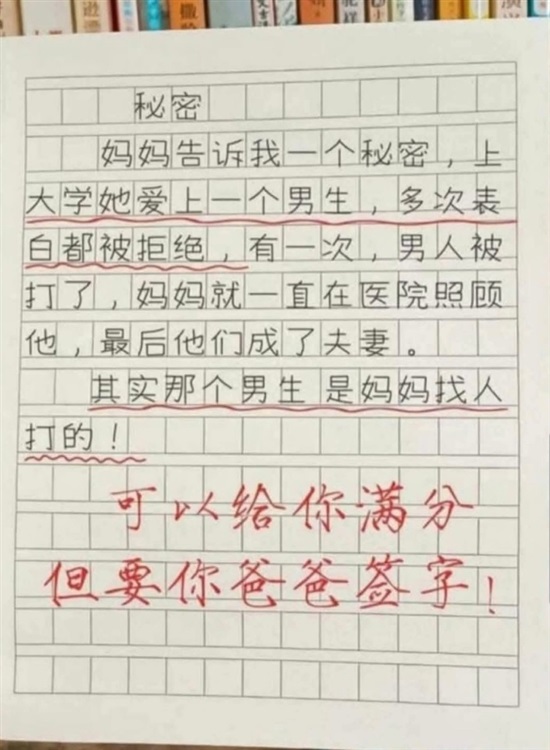 秘密
妈妈告诉我一个秘密，上
大学她爱上一个男生，多次表
白都被拒绝，有一次，男人被
打了，妈妈就一直在医院照顾
他，最后他们成了夫妻。
其实那个男生是妈妈找人
打的！
可以给你满分
但要你爸爸签字！